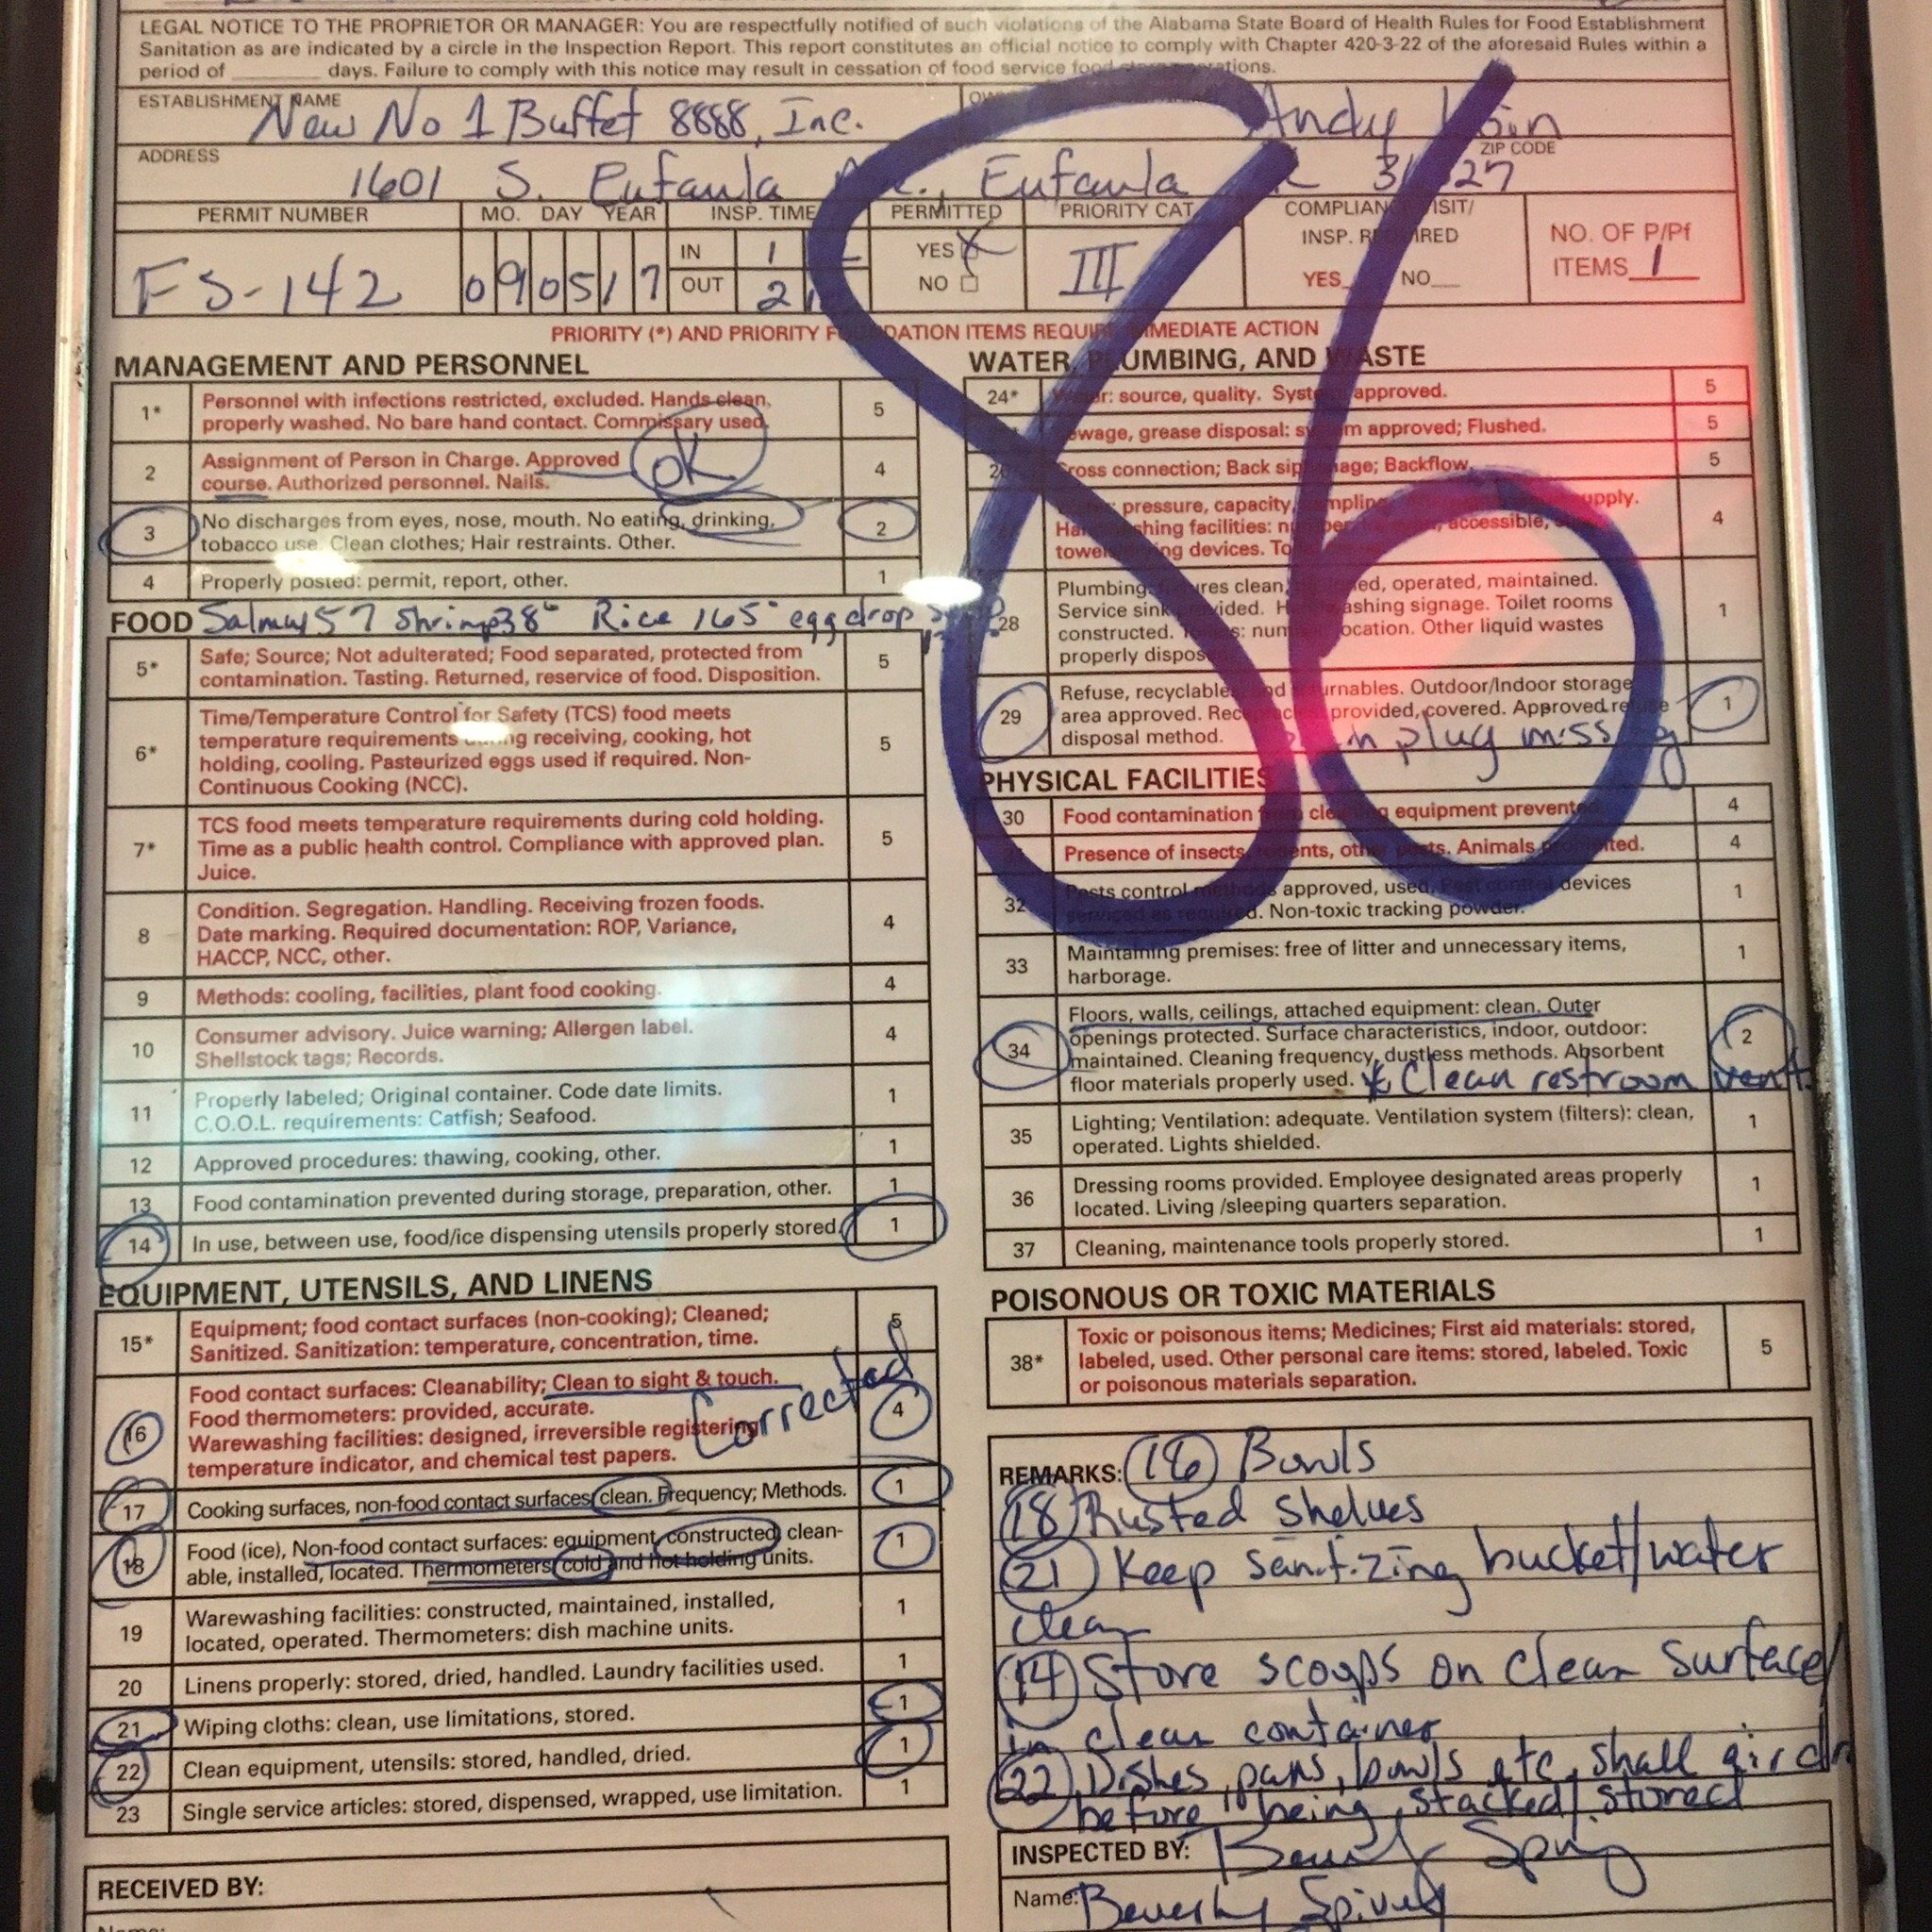 LEGAL NOTICE TO THE PROPRIETOR OR MANAGER: You are respectfully notified of such violations of the Alabama State Board of Health Rules for Food Establishment
Sanitation as are indicated by a circle in the Inspection Report. This report constitutes an official notice to comply with Chapter 420-3-22 of the aforesaid Rules within a
period of ______ days. Failure to comply with this notice may result in cessation of food service
ESTABLISHMENT NAME
New No 1 Buffet 8888, Inc.
Andy
ADDRESS
ZIP CODE
1601 S. Eufaula Eufaula
PERMIT NUMBER MO. DAY YEAR INSP. TIME PERMITTED PRIORITY CAT. COMPLIANCE VISIT/
INSP. REQUIRED
YES NO
NO. OF P/Pf
ITEMS 1
FS-142 09 05 17 IN 1 OUT 2 YES X NO III
86
PRIORITY (*) AND PRIORITY FOUNDATION ITEMS REQUIRE IMMEDIATE ACTION
MANAGEMENT AND PERSONNEL
1* Personnel with infections restricted, excluded. Hands clean, 5
properly washed. No bare hand contact. Commissary used.
2 Assignment of Person in Charge. Approved 4
course. Authorized personnel. Nails.
OK
3 No discharges from eyes, nose, mouth. No eating, drinking, 2
tobacco use. Clean clothes; Hair restraints. Other.
4 Properly posted: permit, report, other. 1
FOOD Shrimp 38° Rice 165° egg drop
5* Safe; Source; Not adulterated; Food separated, protected from 5
contamination. Tasting. Returned, reservice of food. Disposition.
6* Time/Temperature Control for Safety (TCS) food meets 5
temperature requirements during receiving, cooking, hot
holding, cooling. Pasteurized eggs used if required. Non-
Continuous Cooking (NCC).
7* TCS food meets temperature requirements during cold holding. 5
Time as a public health control. Compliance with approved plan.
Juice.
8 Condition. Segregation. Handling. Receiving frozen foods. 4
Date marking. Required documentation: ROP, Variance,
HACCP, NCC, other.
9 Methods: cooling, facilities, plant food cooking. 4
10 Consumer advisory. Juice warning; Allergen label. 4
Shellstock tags; Records.
11 Properly labeled; Original container. Code date limits. 1
C.O.O.L. requirements: Catfish; Seafood.
12 Approved procedures: thawing, cooking, other. 1
13 Food contamination prevented during storage, preparation, other. 1
14 In use, between use, food/ice dispensing utensils properly stored. 1
EQUIPMENT, UTENSILS, AND LINENS
15* Equipment; food contact surfaces (non-cooking); Cleaned; 5
Sanitized. Sanitization: temperature, concentration, time.
16 Food contact surfaces: Cleanability; Clean to sight & touch. 4
Food thermometers: provided, accurate.
Warewashing facilities: designed, irreversible registering
temperature indicator, and chemical test papers.
Corrected
17 Cooking surfaces, non-food contact surfaces clean. Frequency; Methods. 1
18 Food (ice), Non-food contact surfaces: equipment, constructed, clean- 1
able, installed, located. Thermometers: cold and hot holding units.
19 Warewashing facilities: constructed, maintained, installed, 1
located, operated. Thermometers: dish machine units.
20 Linens properly: stored, dried, handled. Laundry facilities used. 1
21 Wiping cloths: clean, use limitations, stored. 1
22 Clean equipment, utensils: stored, handled, dried. 1
23 Single service articles: stored, dispensed, wrapped, use limitation. 1
RECEIVED BY:
WATER, PLUMBING, AND WASTE
24* Water: source, quality. System approved. 5
Sewage, grease disposal: system approved; Flushed. 5
Cross connection; Back siphonage; Backflow. 5
pressure, capacity, sampling supply. 4
Handwashing facilities: number accessible,
28 Plumbing: fixtures clean, operated, maintained. 1
Service sink provided. Handwashing signage. Toilet rooms
constructed. location. Other liquid wastes
properly disposed
29 Refuse, recyclables, and returnables. Outdoor/Indoor storage 1
area approved. Receptacles provided, covered. Approved refuse
disposal method. plug missing
PHYSICAL FACILITIES
30 Food contamination from cleaning equipment prevented. 4
Presence of insects, rodents, other pests. Animals prohibited. 4
32 Pests control methods approved, used. Pest control devices 1
serviced as required. Non-toxic tracking powder.
33 Maintaining premises: free of litter and unnecessary items, 1
harborage.
34 Floors, walls, ceilings, attached equipment: clean. Outer 2
openings protected. Surface characteristics, indoor, outdoor:
maintained. Cleaning frequency, dustless methods. Absorbent
floor materials properly used. * Clean restroom vents
35 Lighting; Ventilation: adequate. Ventilation system (filters): clean, 1
operated. Lights shielded.
36 Dressing rooms provided. Employee designated areas properly 1
located. Living /sleeping quarters separation.
37 Cleaning, maintenance tools properly stored. 1
POISONOUS OR TOXIC MATERIALS
38* Toxic or poisonous items; Medicines; First aid materials: stored, 5
labeled, used. Other personal care items: stored, labeled. Toxic
or poisonous materials separation.
REMARKS: 16 Bowls
18 Rusted shelves
21 Keep sanitizing bucket/water
clean
14 Store scoops on clean surface/
in clean container
22 Dishes, pans, bowls etc. shall air dry
before being stacked/stored
INSPECTED BY:
Name: Beverly Spivey